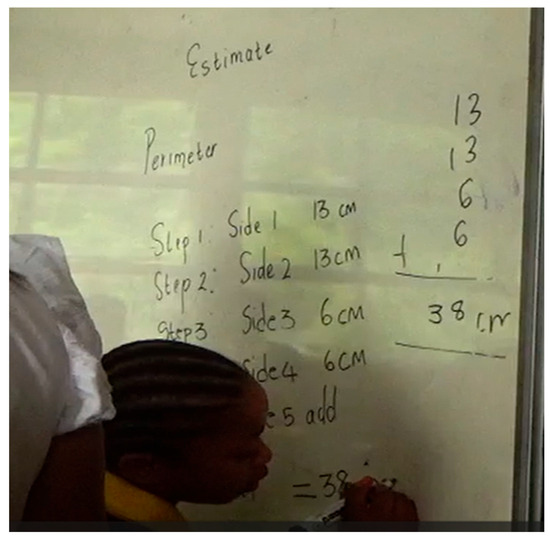 Estimate
Perimeter
Step 1: Side 1 13 cm
Step 2: Side 2 13cm
Step 3 Side 3 6 cm
Side 4 6cm
5 add
= 38
13
13
6
6
+
38 cm